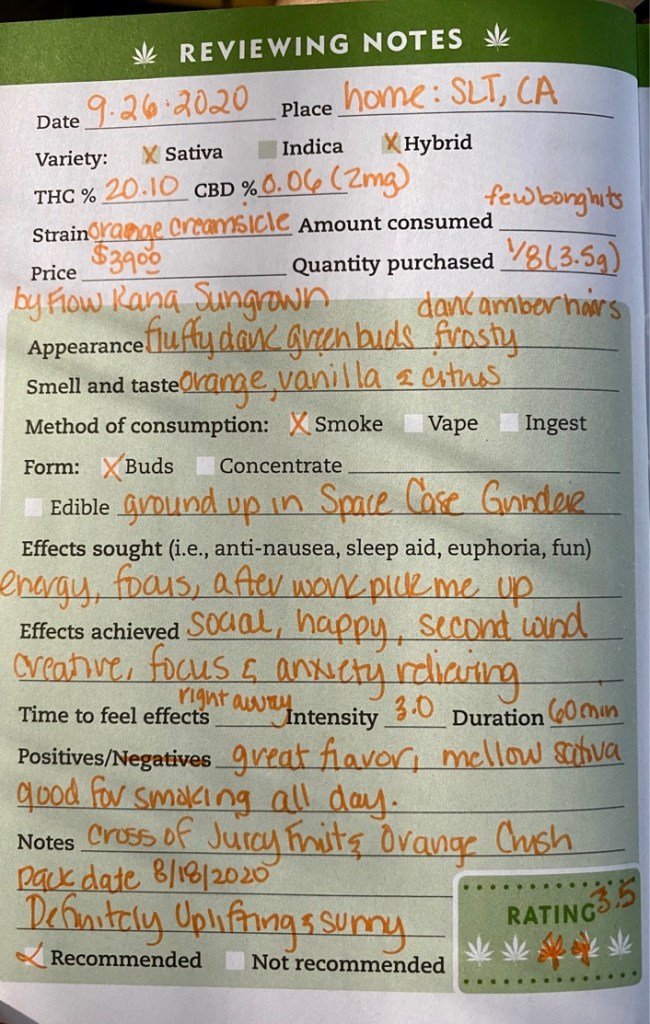 REVIEWING NOTES
Date 9.26.2020 Place home: SLT, CA
Variety: X Sativa Indica X Hybrid
THC % 20.10 CBD % 0.06 (2mg)
few bong hits
Strain orange creamsicle Amount consumed
Price $39.00 Quantity purchased 1/8 (3.5g)
by Flow Kana Sungrown dark amber hairs
Appearance fluffy dark green buds frosty
Smell and taste orange, vanilla & citrus
Method of consumption: X Smoke Vape Ingest
Form: X Buds Concentrate
Edible ground up in Space Case Grinder
Effects sought (i.e., anti-nausea, sleep aid, euphoria, fun)
energy, focus, after work pick me up
Effects achieved social, happy, second wind
creative, focus & anxiety relieving
right away
Time to feel effects Intensity 3.0 Duration 60 min
Positives/Negatives great flavor, mellow sativa
good for smoking all day.
Notes Cross of Juicy Fruit & Orange Crush
pack date 8/18/2020
RATING 3.5
Definitely Uplifting & sunny
Recommended Not recommended